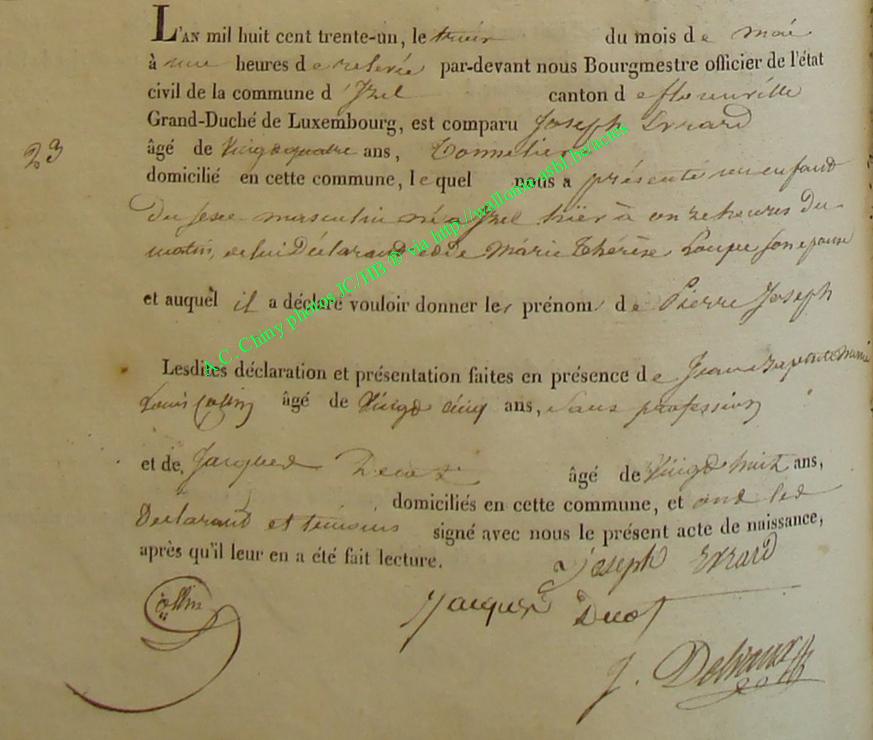 L'AN mil huit cent trente-un, le du mois de mai
à une heures de relevée par-devant nous Bourgmestre officier de l'état
civil de la commune d'Izel canton de florenville
Grand-Duché de Luxembourg, est comparu Joseph Errard
23
âgé de vingt quatre ans, Tonnelier
domicilié en cette commune, lequel nous a présenté un enfant
du sexe masculin né a Izel hier à onze heures du
matin, de lui Déclarant et de Marie Thérèse Loupe son epouse
et auquel il a déclaré vouloir donner les prénoms de Pierre Joseph
Lesdites déclaration et présentation faites en présence de Jean Marie
Louis Collin âgé de Vingt cinq ans, sans profession
et de Jacques âgé de Vingt huit ans,
domiciliés en cette commune, et ont les
Declarant et temoins signé avec nous le présent acte de naissance,
après qu'il leur en a été fait lecture.
Joseph Errard
Collin
Jacques
J.
A.C. Chiny photos JC/HB ® via http://wallonia-asbl.be/actes